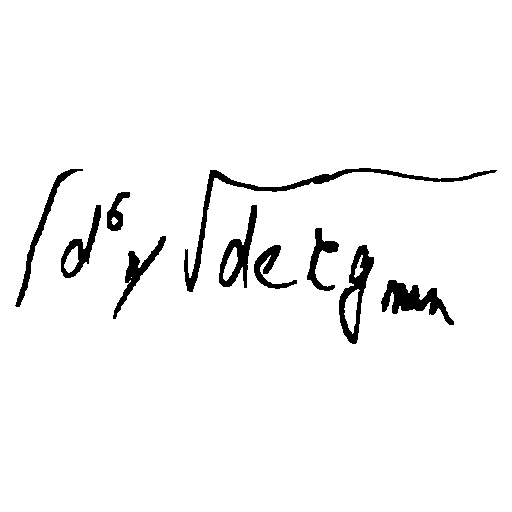 ∫ d^6 y √(det g_{mn})